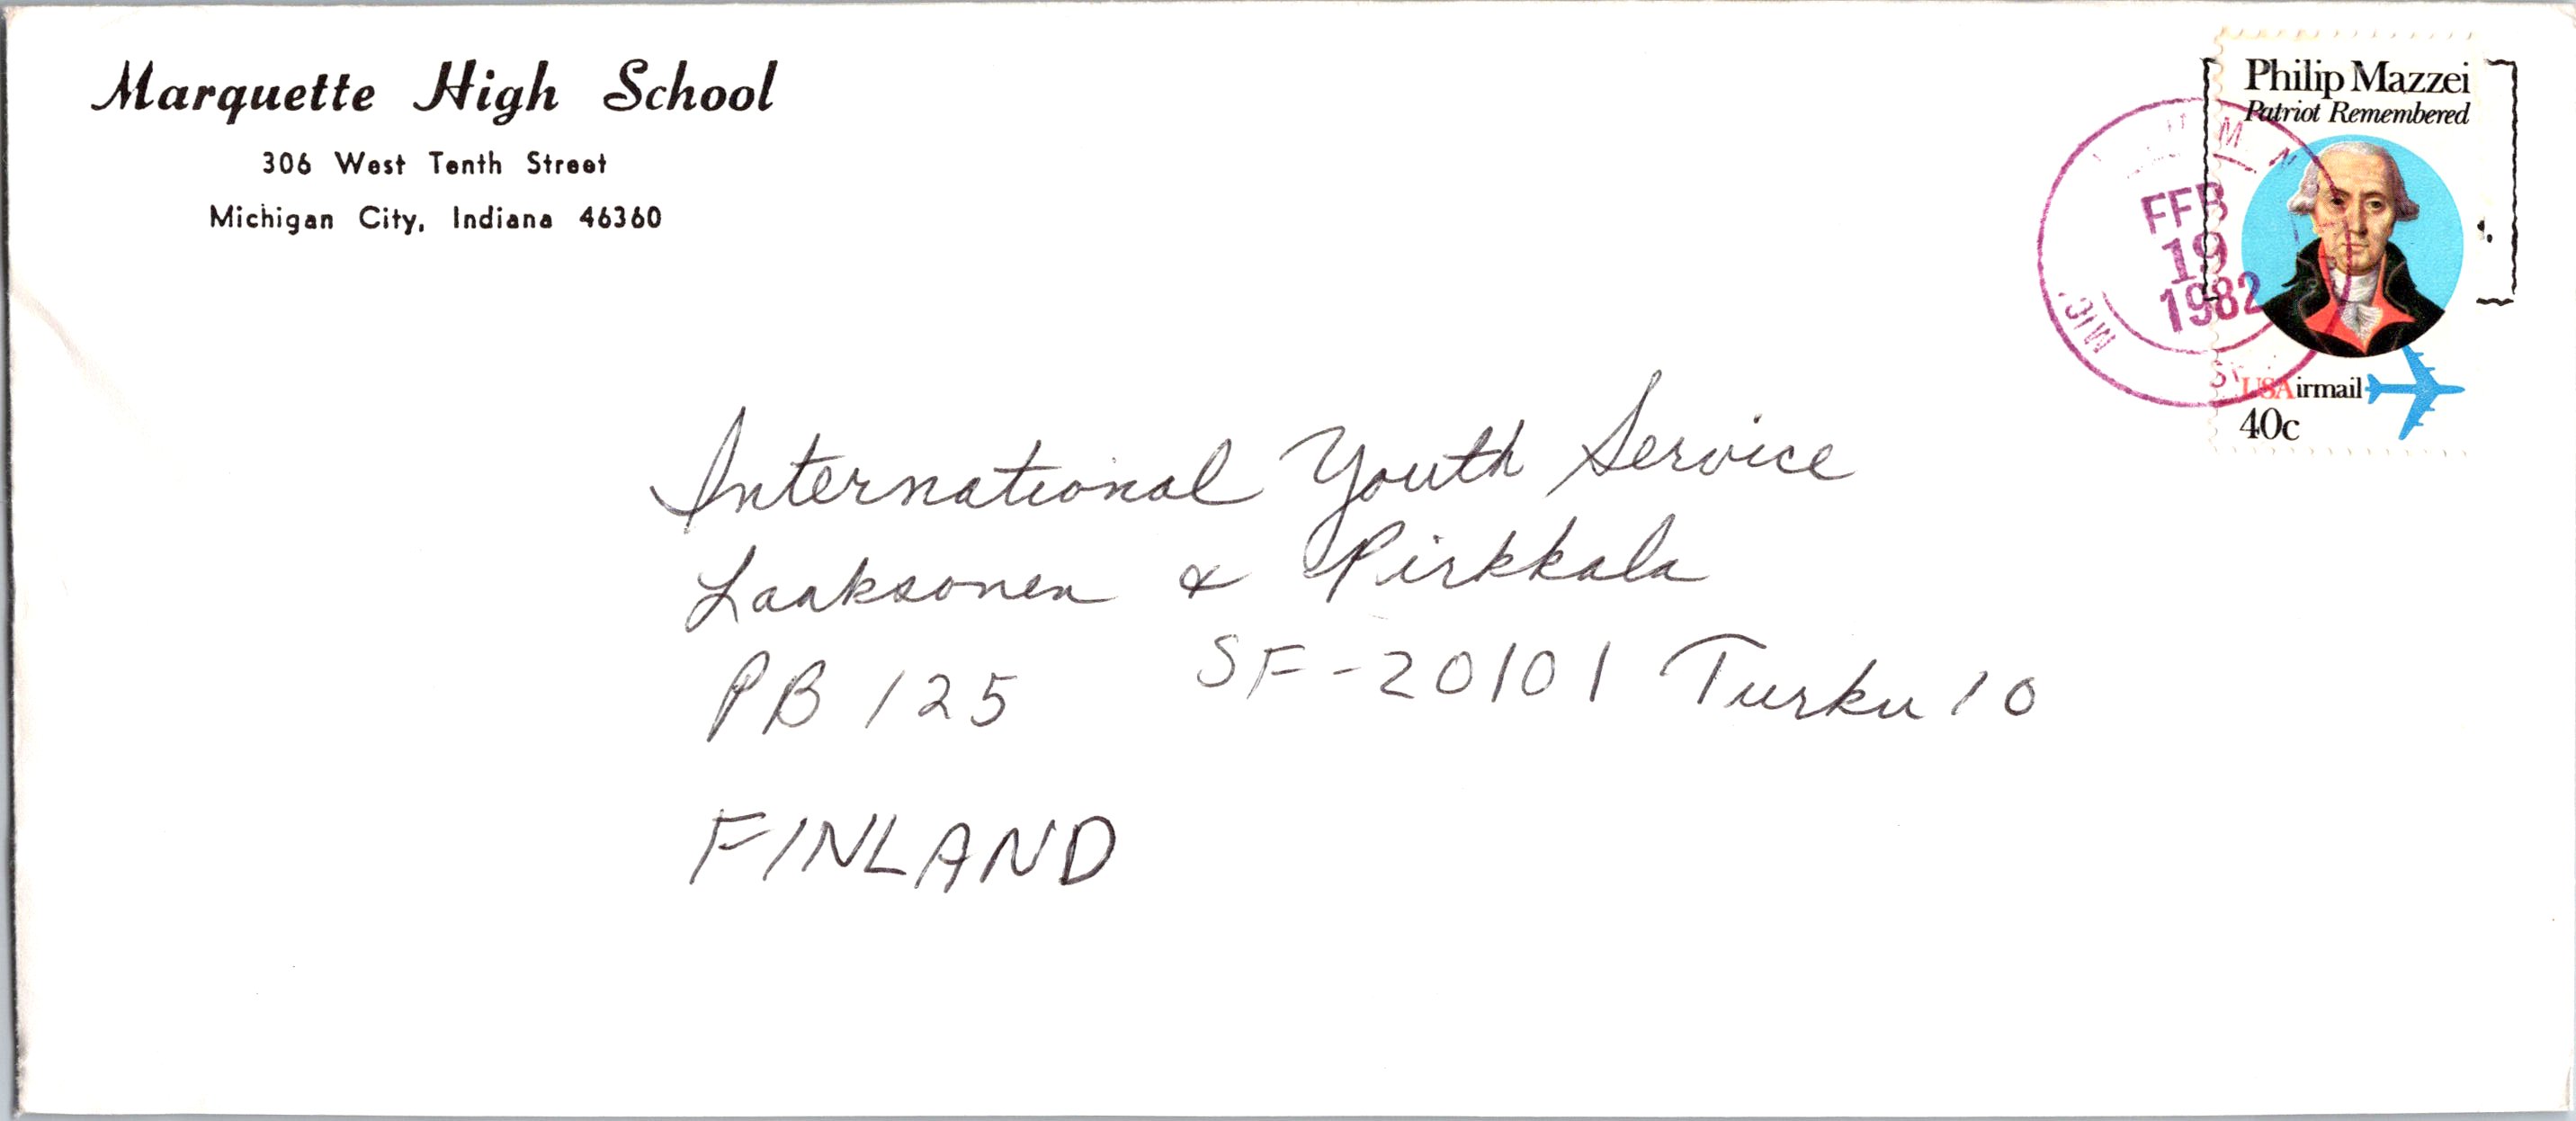 Marquette High School
306 West Tenth Street
Michigan City, Indiana 46360
Philip Mazzei
Patriot Remembered
FEB
19
1982
MIC
USAirmail
40c
International Youth Service
Laaksonen & Pirkkala
PB 125 SF-20101 Turku 10
FINLAND